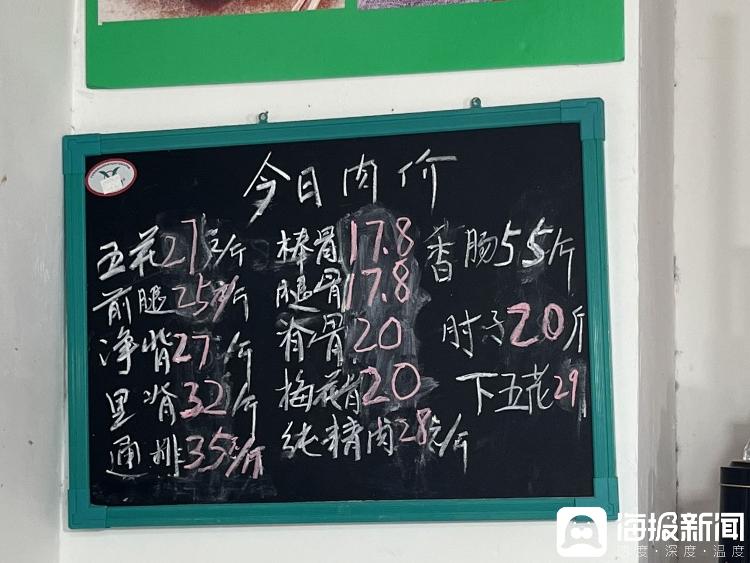 今日肉价
五花27元/斤
前腿25元/斤
净脊27/斤
里脊32/斤
通排35元/斤
棒骨17.8
腿骨17.8
脊骨20
梅花脊20
纯精肉28元/斤
香肠55斤
肘子20斤
下五花29
海报新闻
态度·深度·温度